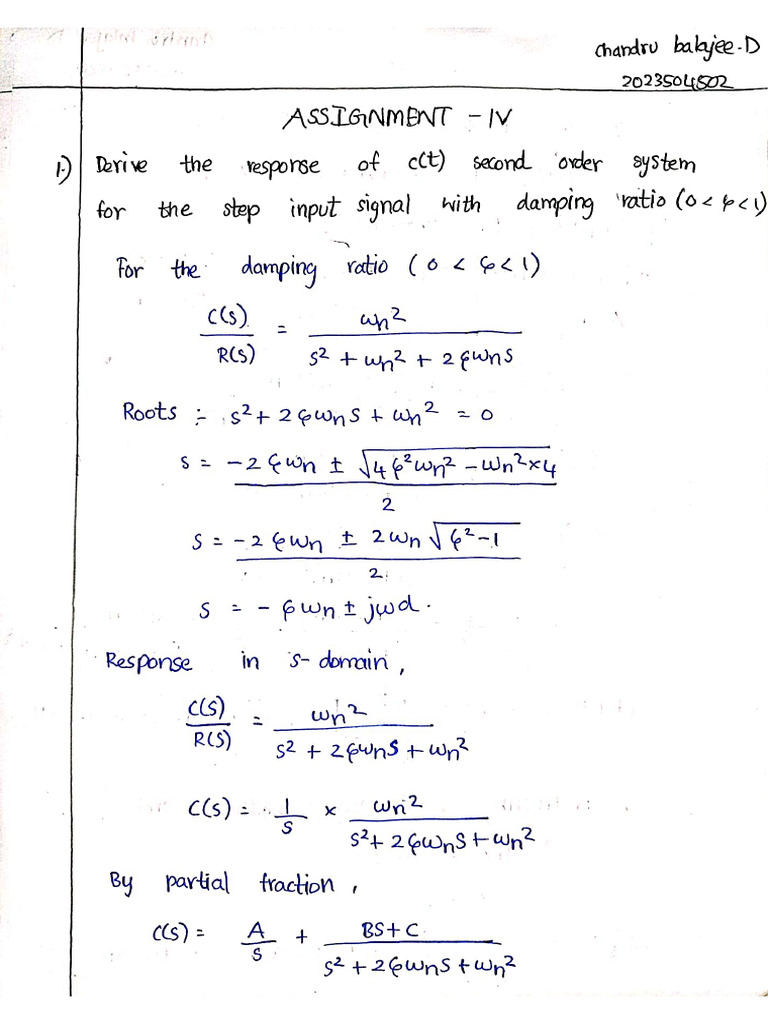 Chandru balajee.D
2023504502
ASSIGNMENT - IV
1.) Derive the response of c(t) second order system
for the step input signal with damping ratio (0 < ϕ < 1)
For the damping ratio (0 < ϕ < 1)
C(S)/R(S) = ωn²/(S² + ωn² + 2ϕωnS)
Roots :- S² + 2ϕωnS + ωn² = 0
S = (-2ϕωn ± √(4ϕ²ωn² - ωn²×4))/2
S = (-2ϕωn ± 2ωn√(ϕ²-1))/2
S = -ϕωn ± jωd.
Response in s-domain,
C(S)/R(S) = ωn²/(S² + 2ϕωnS + ωn²)
C(S) = 1/S × ωn²/(S² + 2ϕωnS + ωn²)
By partial fraction,
C(S) = A/S + (BS+C)/(S² + 2ϕωnS + ωn²)